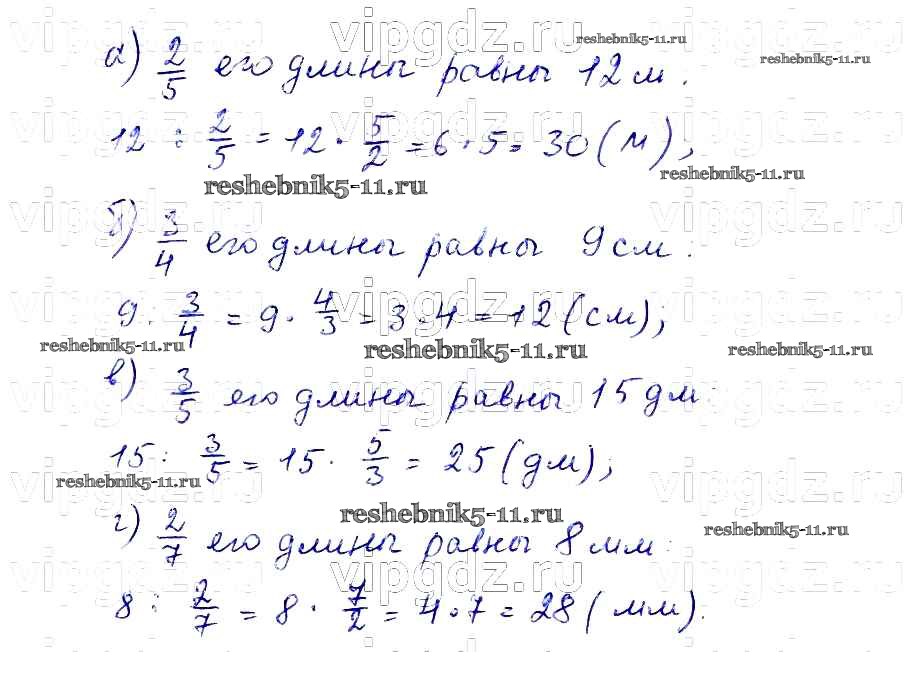 а) 2/5 его длины равны 12 м:
12 : 2/5 = 12 · 5/2 = 6 · 5 = 30 (м);
б) 3/4 его длины равны 9 см:
9 : 3/4 = 9 · 4/3 = 3 · 4 = 12 (см);
в) 3/5 его длины равны 15 дм:
15 : 3/5 = 15 · 5/3 = 25 (дм);
г) 2/7 его длины равны 8 мм:
8 : 2/7 = 8 · 7/2 = 4 · 7 = 28 (мм).
vipgdz.ru
reshebnik5-11.ru